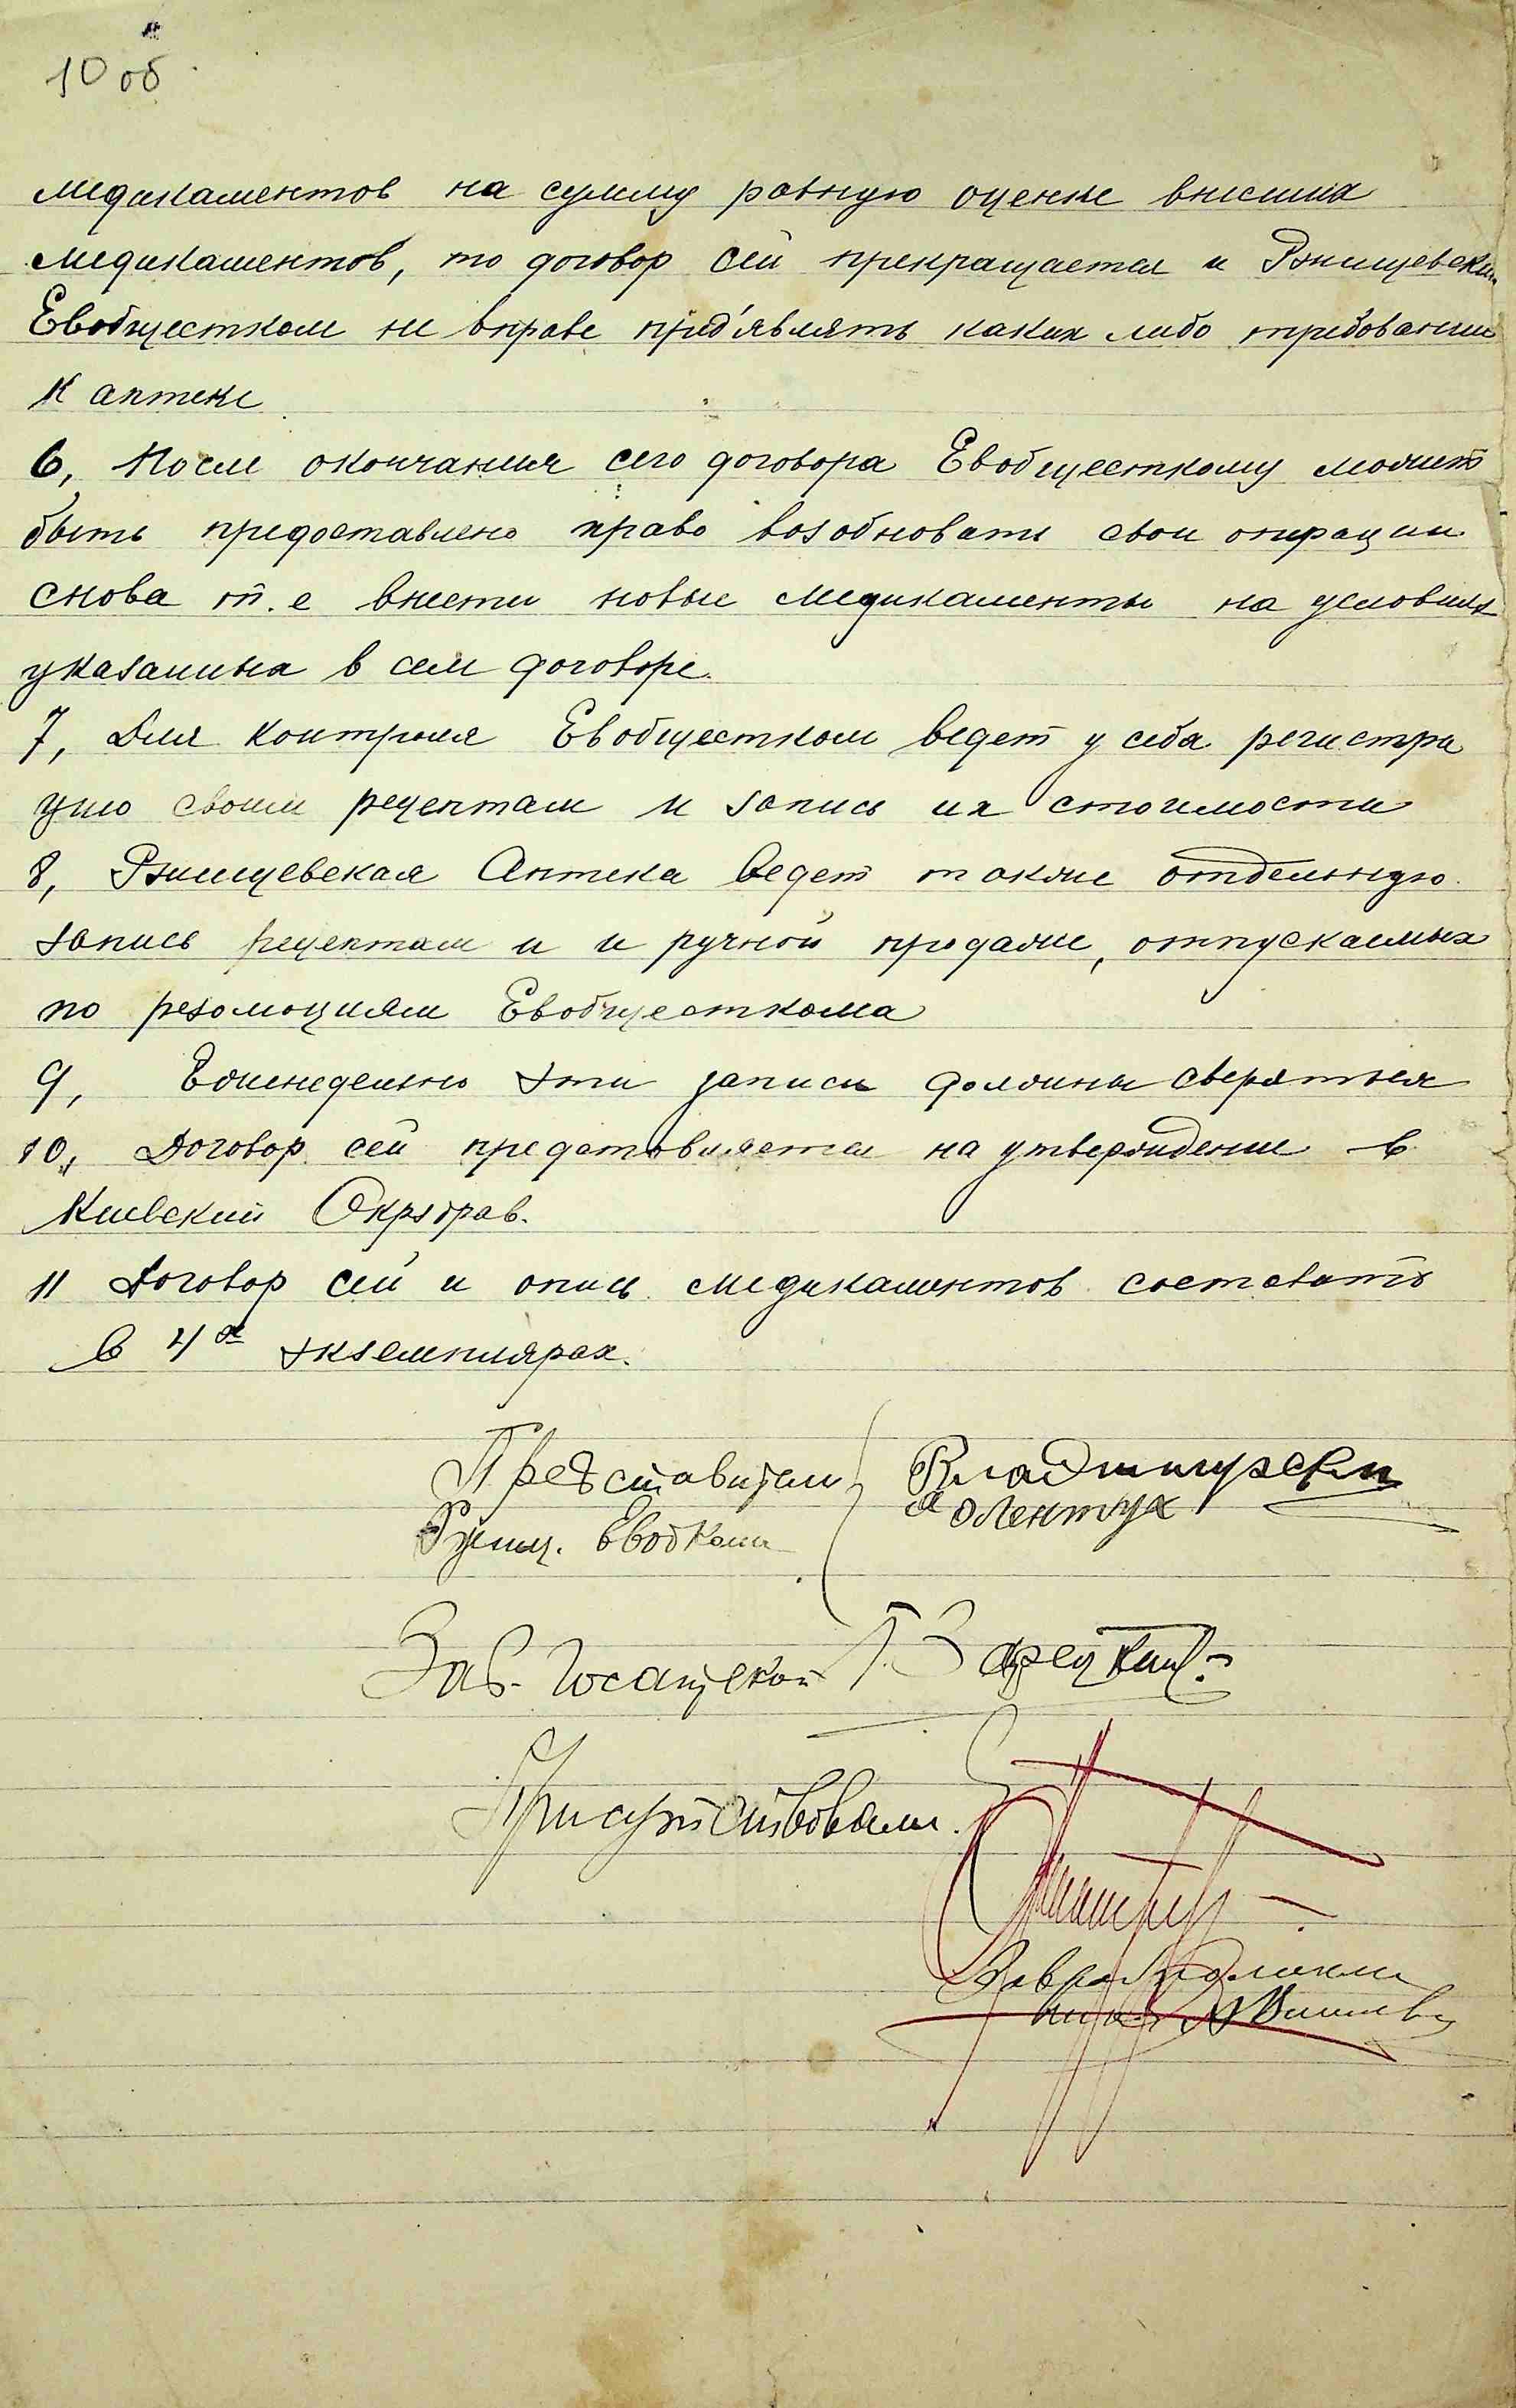 10 об
медикаментов на сумму равную оценке внесших
медикаментов, то договор сей прекращается и Ржищевский
Евобщестком не вправе пред'являть каких либо требований
к аптеке
6, После окончания сего договора Евобщесткому может
быть предоставлено право возобновать свои операции
снова т. е внести новые медикаменты на условиях
указанных в сем договоре.
7, Для контроля Евобщестком ведет у себя регистра
цию своим рецептам и запись их стоимости
8, Ржищевская Аптека ведет также отдельную
запись рецептам и и ручной продаже, отпускаемых
по резолюциям Евобщесткома
9, Еженедельно эти записи должны сверяться
10, Договор сей представляется на утверждение в
Киевский Окрздрав.
11 Договор сей и опись медикаментов составить
в 4х экземплярах.
Представители
Ржищ. Евобком
Полентух
Зав. Госаптекой Г. Зарецкий
Присутствовали.